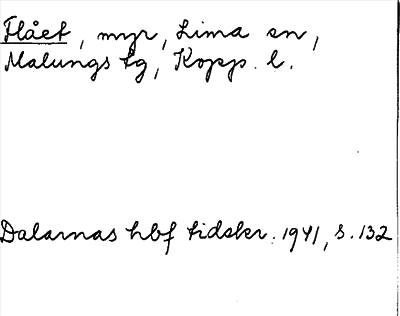 Flået, myr, Lima sn,
Malungs tg, Kopp. l.
Dalarnas hbf tidskr. 1941, s. 132